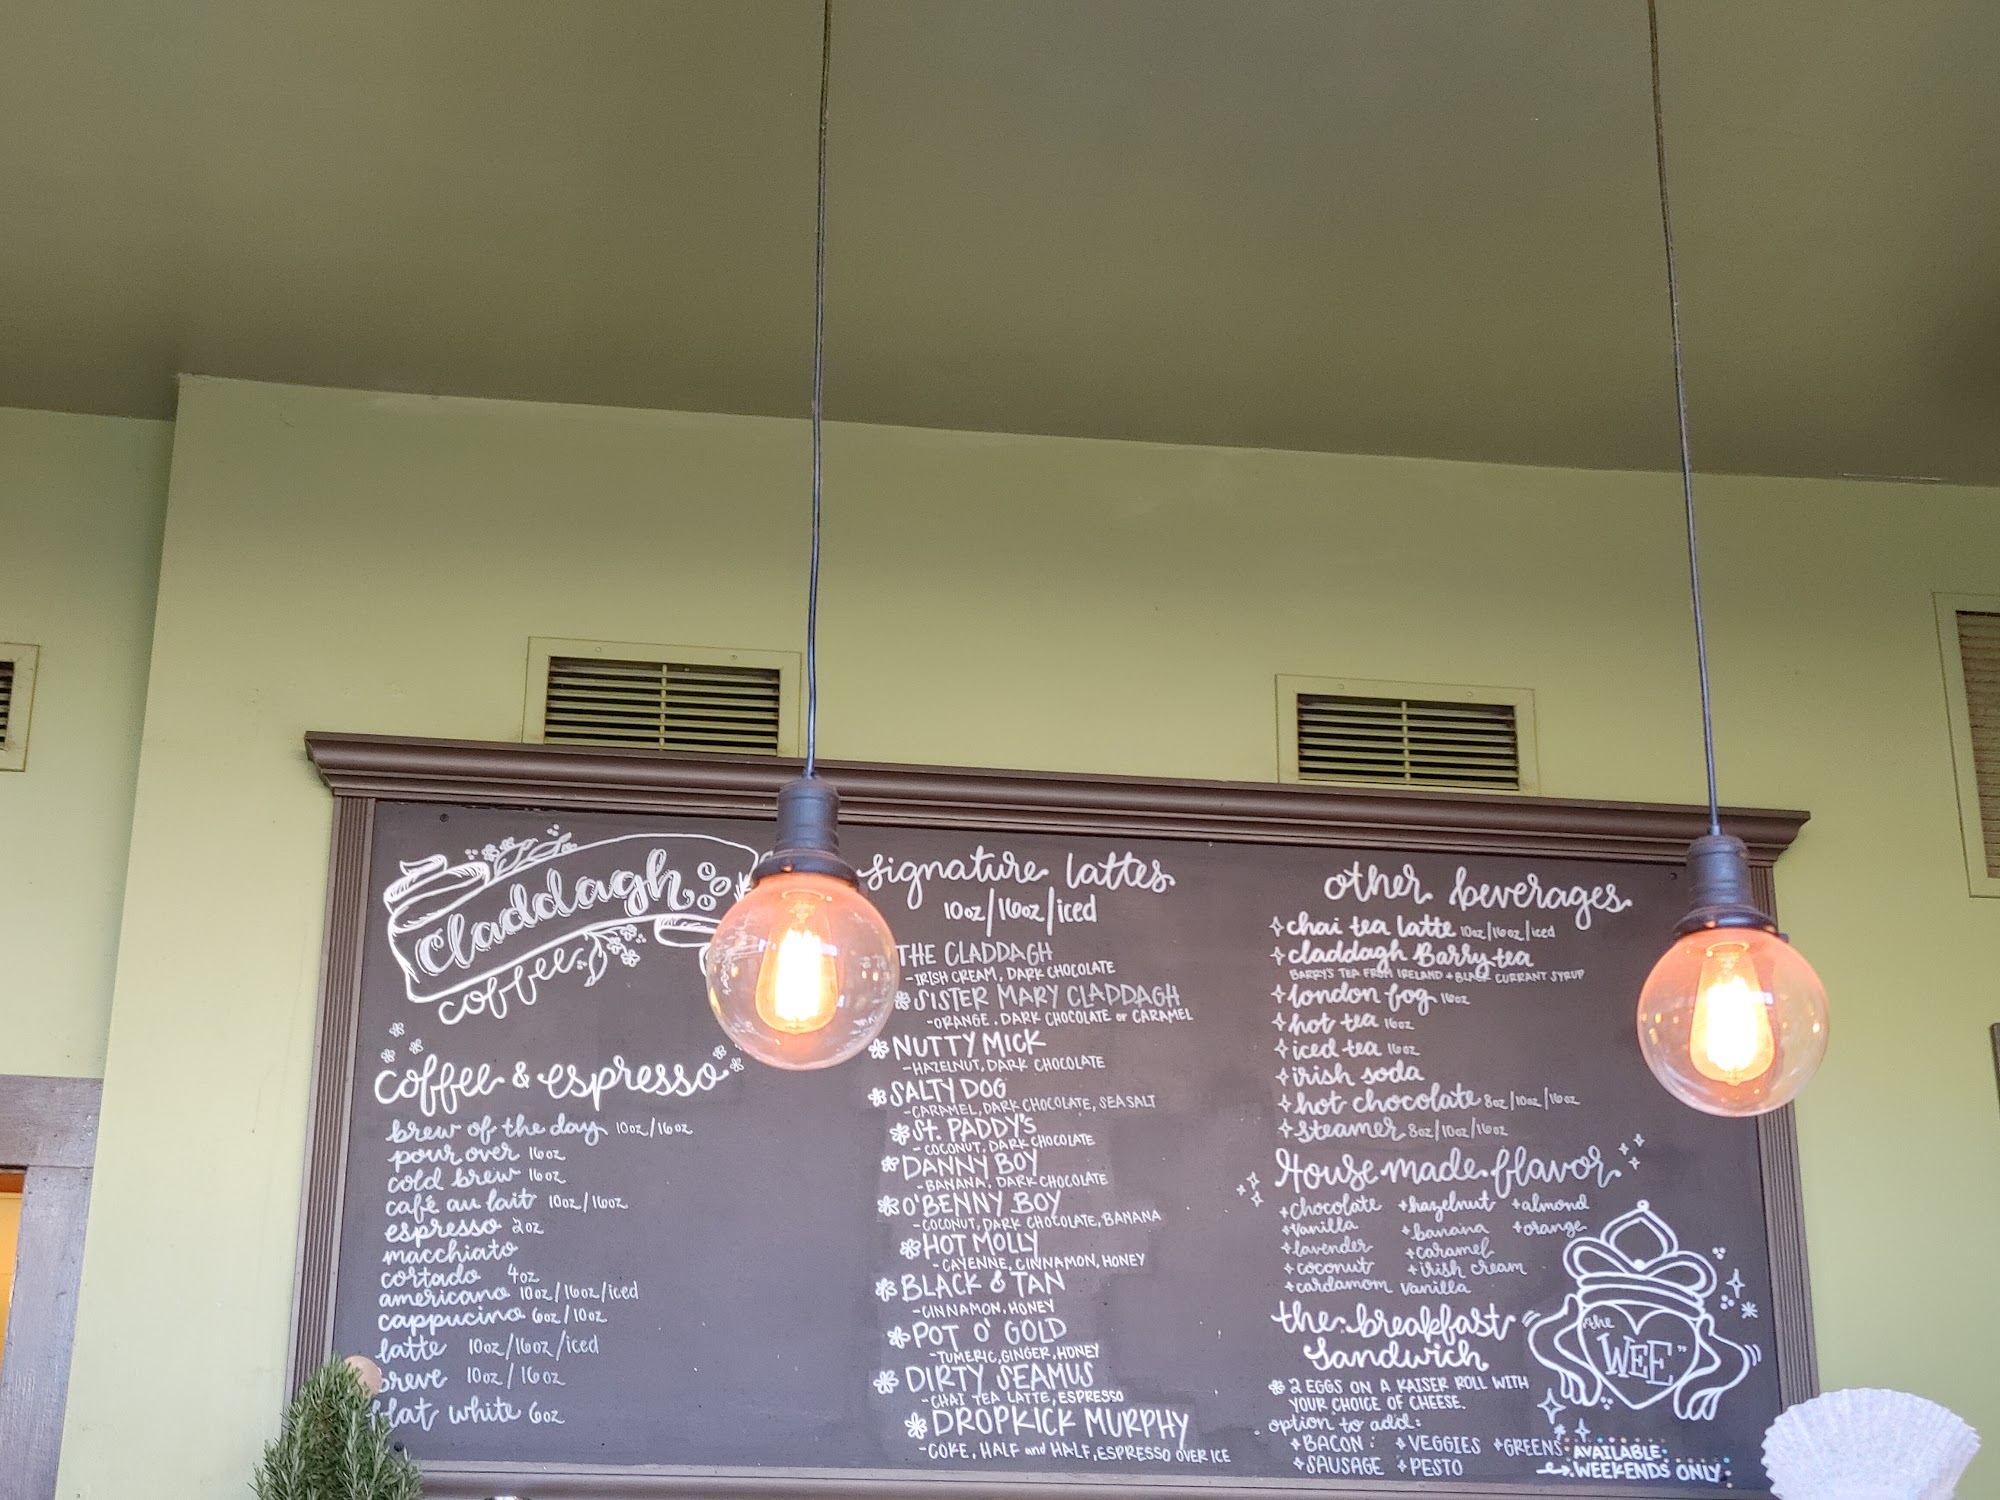 Claddagh
coffee
coffee & espresso
brew of the day 10oz/16oz
pour over 16oz
cold brew 16oz
café au lait 10oz/16oz
espresso 2oz
macchiato
cortado 4oz
americano 10oz/16oz/iced
cappuccino 6oz/10oz
latte 10oz/16oz/iced
breve 10oz/16oz
flat white 6oz
signature lattes
10oz/16oz/iced
THE CLADDAGH
-IRISH CREAM, DARK CHOCOLATE
SISTER MARY CLADDAGH
-ORANGE, DARK CHOCOLATE or CARAMEL
NUTTY MICK
-HAZELNUT, DARK CHOCOLATE
SALTY DOG
-CARAMEL, DARK CHOCOLATE, SEA SALT
St. PADDY'S
-COCONUT, DARK CHOCOLATE
DANNY BOY
-BANANA, DARK CHOCOLATE
O'BENNY BOY
-COCONUT, DARK CHOCOLATE, BANANA
HOT MOLLY
-CAYENNE, CINNAMON, HONEY
BLACK & TAN
-CINNAMON, HONEY
POT O' GOLD
-TUMERIC, GINGER, HONEY
DIRTY SEAMUS
-CHAI TEA LATTE, ESPRESSO
DROPKICK MURPHY
-COKE, HALF and HALF, ESPRESSO OVER ICE
other beverages
chai tea latte 10oz/16oz/iced
claddagh Barry tea
BARRY'S TEA FROM IRELAND + BLACK CURRANT SYRUP
london fog 16oz
hot tea 16oz
iced tea 16oz
irish soda
hot chocolate 8oz/10oz/16oz
steamer 8oz/10oz/16oz
House made flavor
+chocolate +hazelnut +almond
+vanilla +banana +orange
+lavender +caramel
+coconut +irish cream
+cardamom vanilla
the breakfast
sandwich
2 EGGS ON A KAISER ROLL WITH
YOUR CHOICE OF CHEESE.
option to add:
+BACON +VEGGIES +GREENS
+SAUSAGE +PESTO
the
WEE"
AVAILABLE
WEEKENDS ONLY